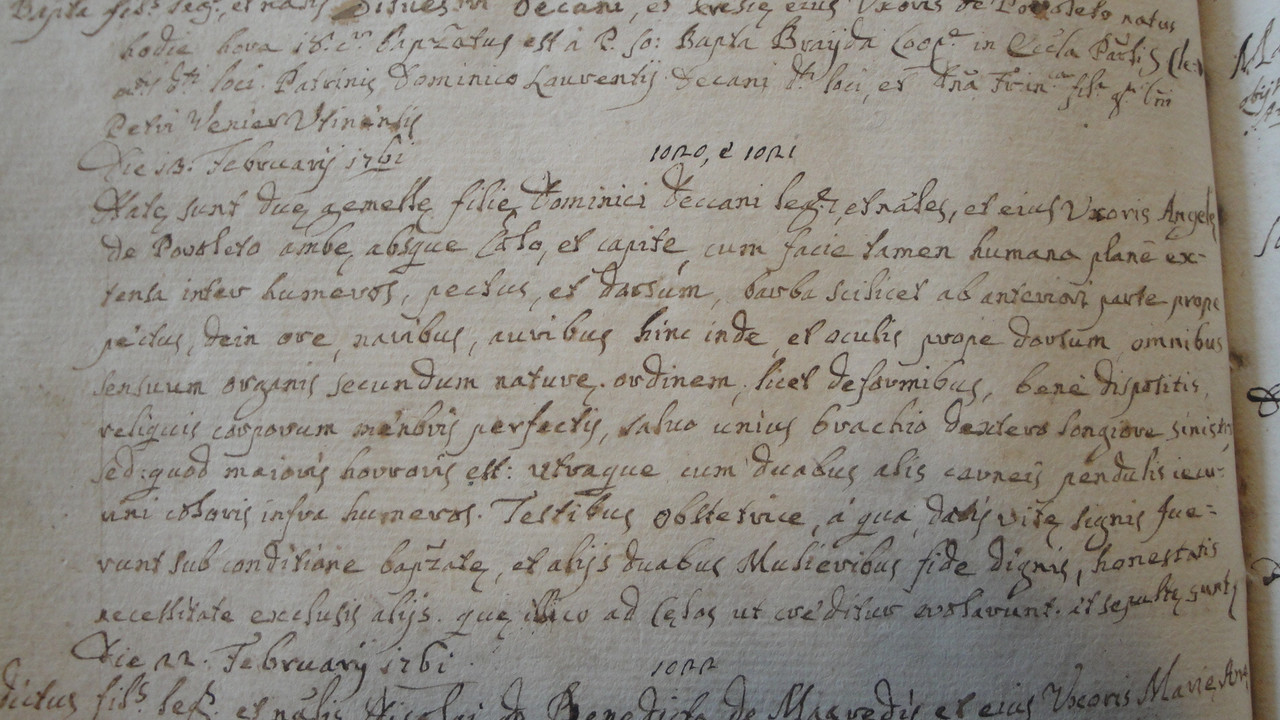 Bapta fil.s leg.s, et nat.s Decani, et eius Uxoris de Povoleto natus
hodie hora 18. c.a bapzatus est à P. Jo: Bapta Brayda Coop.e in Eccla
loci. Patrinis Dominico Laurentij Decani d.ti loci, et
Petri Venier Utinensis
Die 13. Februarij 1761
1020, è 1021
Natę sunt duę gemellę filię Dominici Decani leg.s et náles, et eius Uxoris Angelę
de Povoleto ambę absque Collo, et capite, cum facie tamen humana planè ex-
tensa inter humeros, pectus, et dorsum, barba scilicet ab anteriori parte prope
pectus, dein ore, naribus, auribus hinc inde, et oculis prope dorsum, omnibus
sensuum organis secundum naturę ordinem, licet deformibus, benè dispositis,
reliquis corporum menbris perfectis, salvo unius brachio dextero longiore sinistro,
sed: quod maioris horroris est: utraque cum duabus alis carneis pendulis iecu-
rini coloris infra humeros. Testibus obstetrice, à qua, datis vitę signis fue-
runt sub conditione bapzatę, et alijs duabus Mulieribus fide dignis, honestatis
necessitate exclusis alijs. quę illico ad Cęlos ut creditur evolarunt. et sepultę sunt
Die 22. Februarij 1761
1022
fil.s leg.s et nális Nicolai Benedictà de Magredis et eius Uxoris Marię